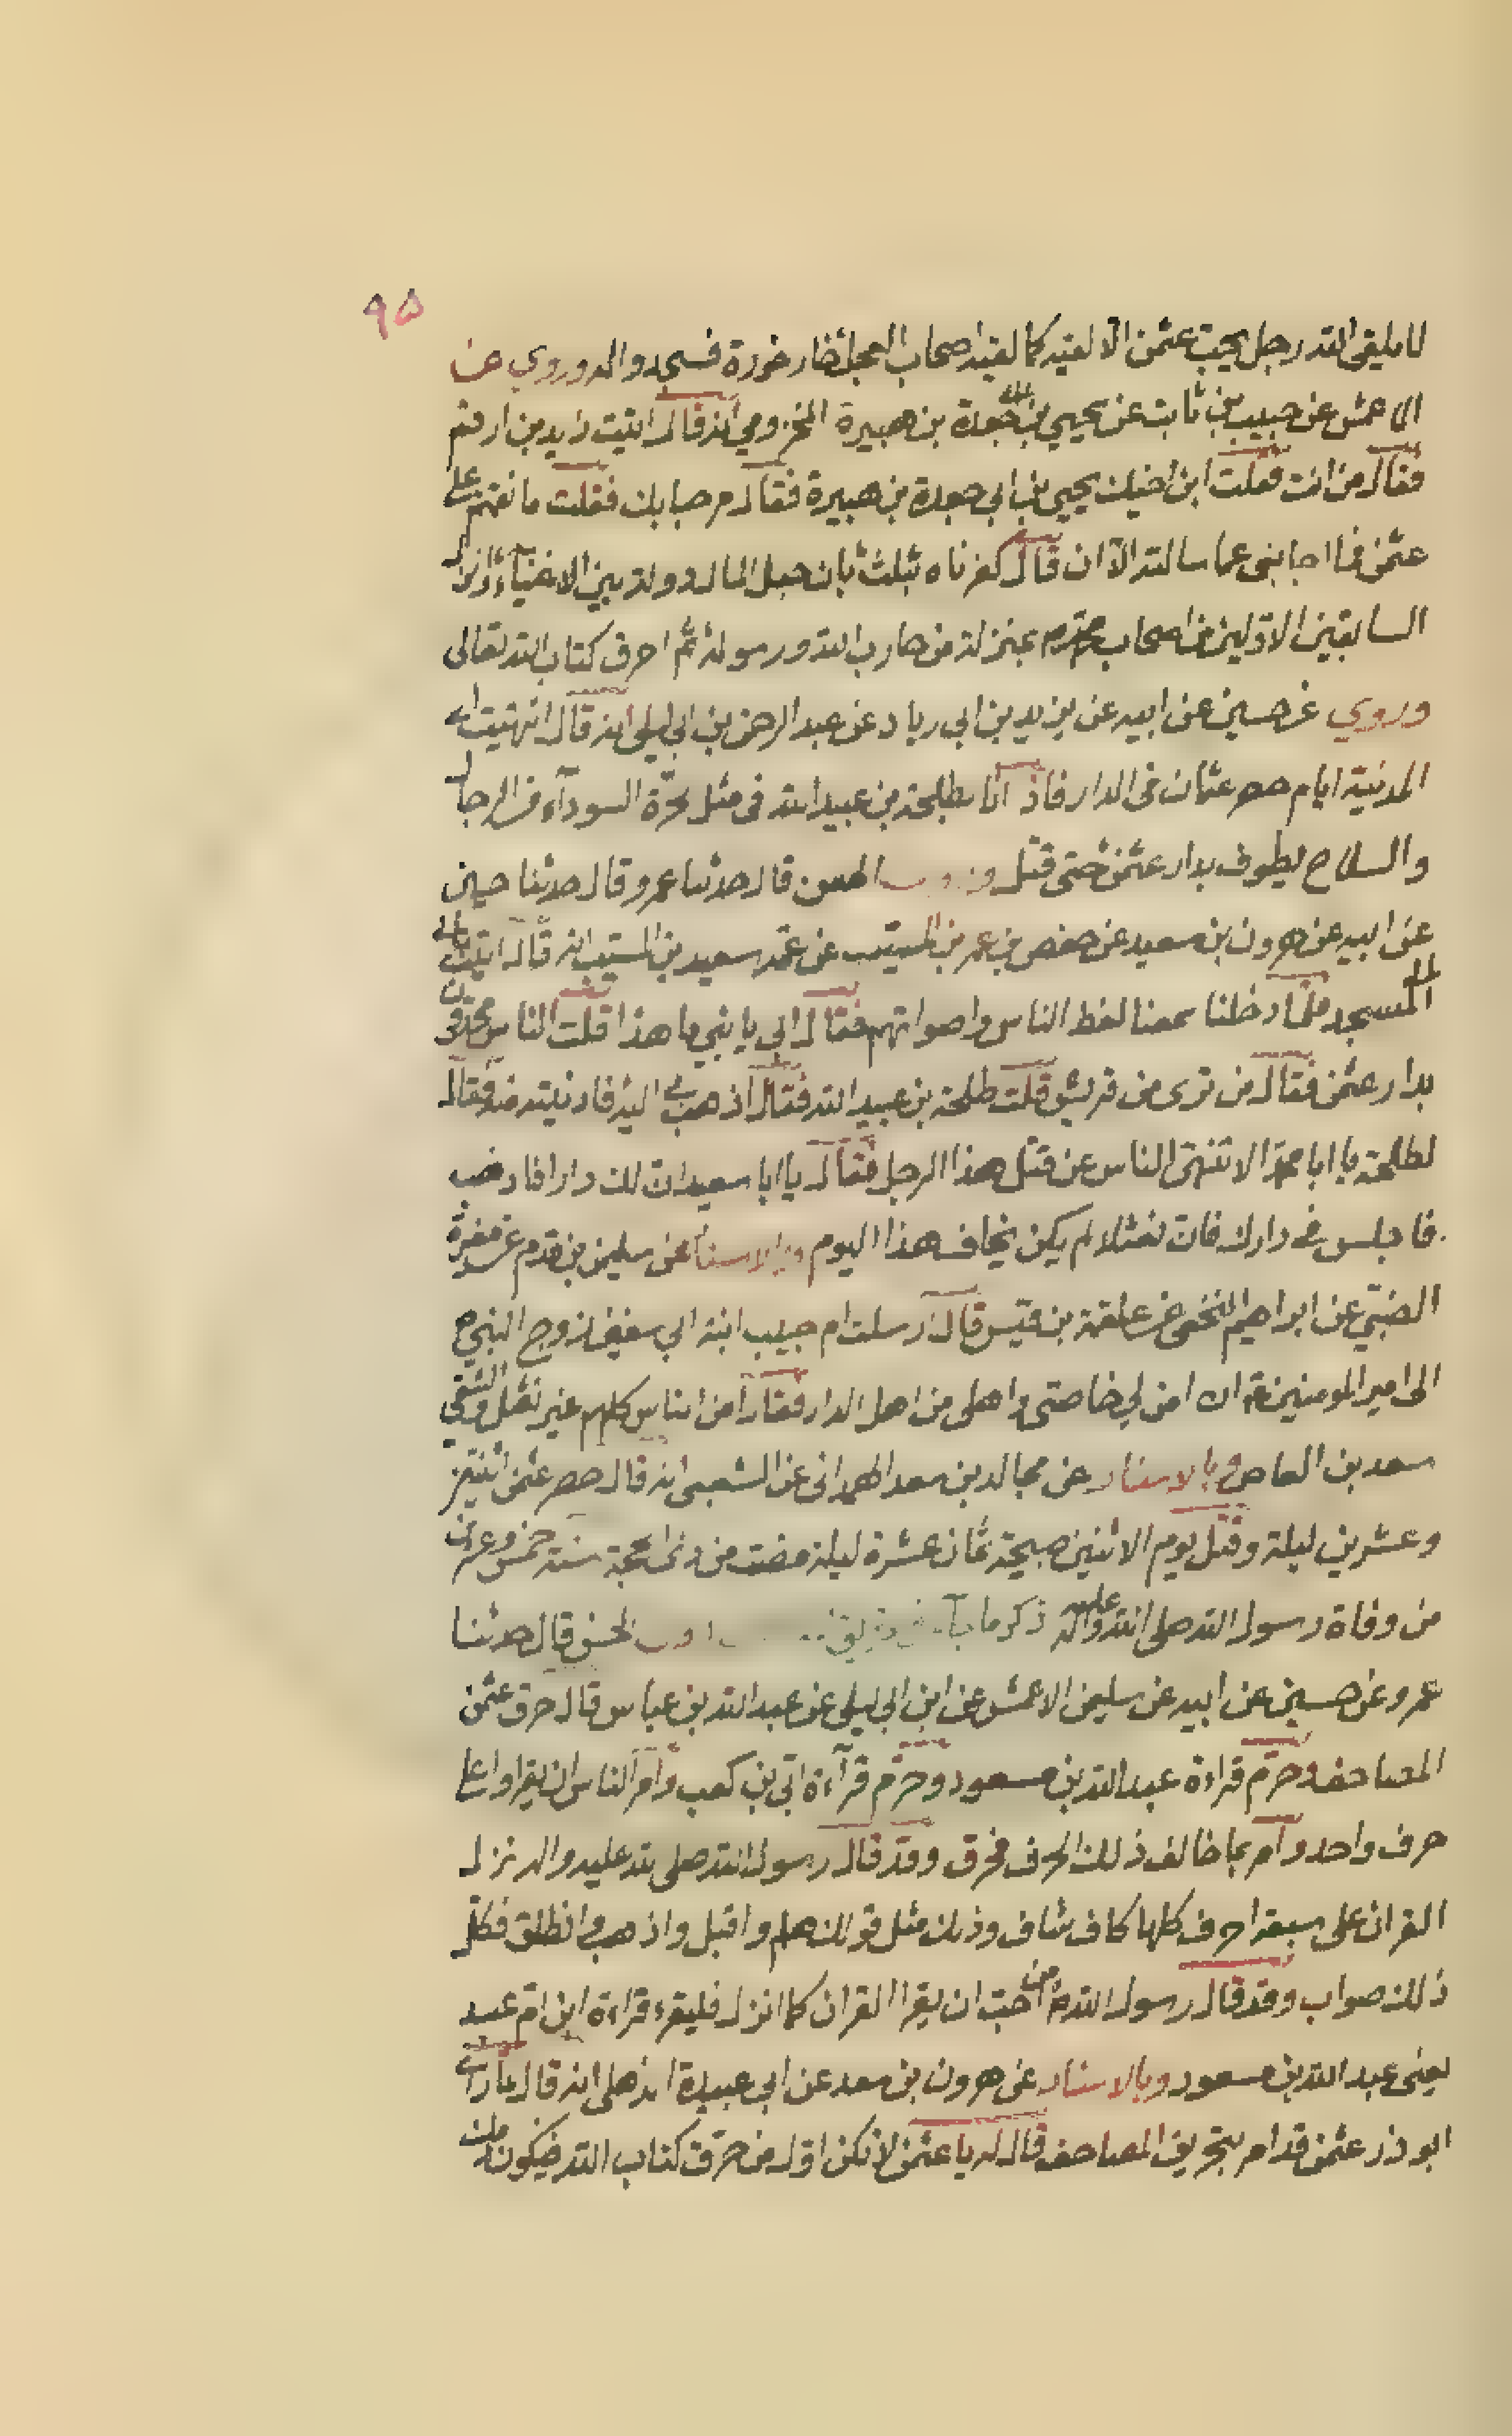 ٩٥
لا يلقى الله رجل يحب عثمن الا لقيه كما لقيه اصحاب العجل وروي عن
الاعمش عن حبيب بن ثابت عن يحيى بن جعدة بن هبيرة المخزومي انه قال اتيت زيد بن ارقم
فقال من انت فقلت ابن اخيك يحيى بن ابي جعدة بن هبيرة فقال مرحبا بك فقلت ما نقمتم على
عثمن فما اجابنى عما سالته الا ان قال كفرناه بثلث بان جعل المال دولة بين الاغنياء وانزل
السابقين الاولين من اصحاب محمد بمنزلة من حارب الله ورسوله ثم احرق كتاب الله تعالى
وروي عن حسين عن ابيه عن يزيد بن ابي زياد عن عبد الرحمن بن ابي ليلى انه قال انتهيت الى
المدينة ايام حصر عثمان في الدار فاذا انا بطلحة بن عبيد الله فى مثل الحرة السودآء من الرجال
والسلاح يطوف بدار عثمن حتى قتل الحسن قال حدثنا عمرو قال حدثنا حسين
عن ابيه عن هرون بن سعيد عن حفص بن عمر بن المسيب عن عمه سعيد بن المسيب انه قال اتيت بابي
المسجد فلما دخلنا سمعنا لغط الناس واصواتهم فقال ابي يا بني ما هذا قلت الناس محدقون
بدار عثمن فقال من ترى من قريش قلت طلحة بن عبيد الله فقال اذهب بي اليه فادنيته منه فقال
لطلحة يا ابا محمد الا تنهى الناس عن قتل هذا الرجل فقال يا ابا سعيد ان لك دارا فاذهب
فاجلس في دارك فان نعثلا لم يكن يخاف هذا اليوم وبالاسناد عن سليمن بن قدم عن مغيرة
الضبّي عن ابراهيم النخعى عن علقمة بن قيس قال ارسلت ام حبيب ابنة ابي سفين زوج النبي ص
الى امير المومنين ع ان امن لي خاصتى واهلى من اهل الدار فقال امن الناس كلهم غير نعثل والشقي
سعد بن العاص وبالاسناد عن مجالد بن سعد الهمدانى عن الشعبى انه قال حصر عثمن اثنتين
وعشرين ليلة وقتل يوم الاثنين صبيحة ثمان عشرة ليلة مضت من ذى الحجة سنة خمس وعشرين
من وفاة رسول الله صلى الله عليه واله ذكر ما جآء في الحسن قال حدثنا
عمرو عن حسين عن ابيه عن سليمن الاعمش عن ابن ابي ليلى عن عبد الله بن عباس قال حرق عثمن
المصاحف وحرم قراءة عبد الله بن مسعود وحرم قرآءة ابّي بن كعب وامر الناس ان يقراوا على
حرف واحد وامر بما خالف ذلك الحرف فحرق وقد قال رسول الله صلى الله عليه واله نزل
القران على سبعة احرف كلها كاف شاف وذلك مثل قولك هلم واقبل واذهب وانطلق فكل
ذلك صواب وقد قال رسول الله ص من احب ان يقرا القران كما انزل فليقرء قراءة ابن ام عبد
يعنى عبد الله بن مسعود وبالاسناد عن هرون بن سعد عن ابي عبيدة انه قال لما راى
ابو ذر عثمن قد امر بتحريق المصاحف قال له يا عثمن لا تكن اول من حرق كتاب الله فيكون دمك